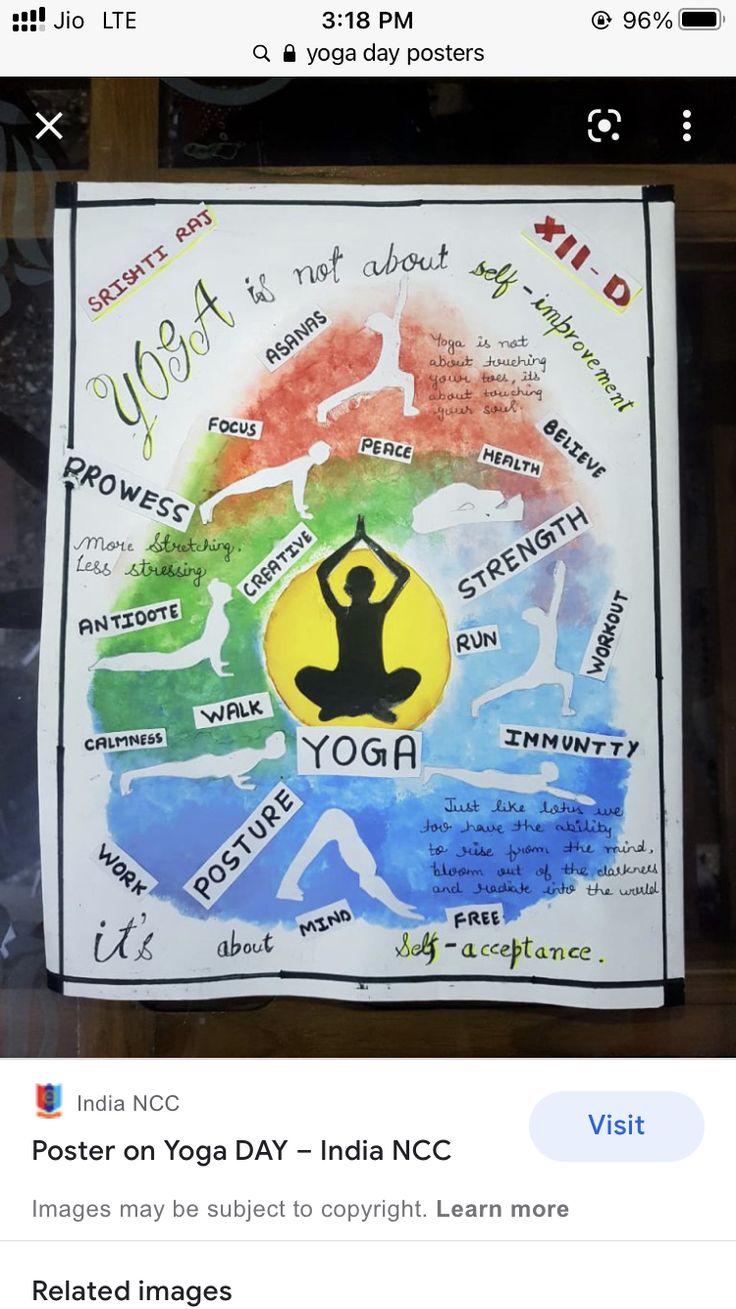 Jio LTE 3:18 PM 96%
yoga day posters
SRISHTI RAJ
XII-D
YOGA is not about self-improvement
ASANAS
Yoga is not
about touching
your toes, its
about touching
your soul.
FOCUS
PEACE
HEALTH
BELIEVE
PROWESS
STRENGTH
More Stretching.
Less stressing
CREATIVE
ANTIDOTE
RUN
WORKOUT
WALK
CALMNESS
YOGA
IMMUNTTY
Just like lotus we
too have the ability
to rise from the mind,
bloom out of the darkness
and radiate into the world
POSTURE
WORK
MIND
FREE
it's about self-acceptance.
India NCC
Visit
Poster on Yoga DAY – India NCC
Images may be subject to copyright. Learn more
Related images